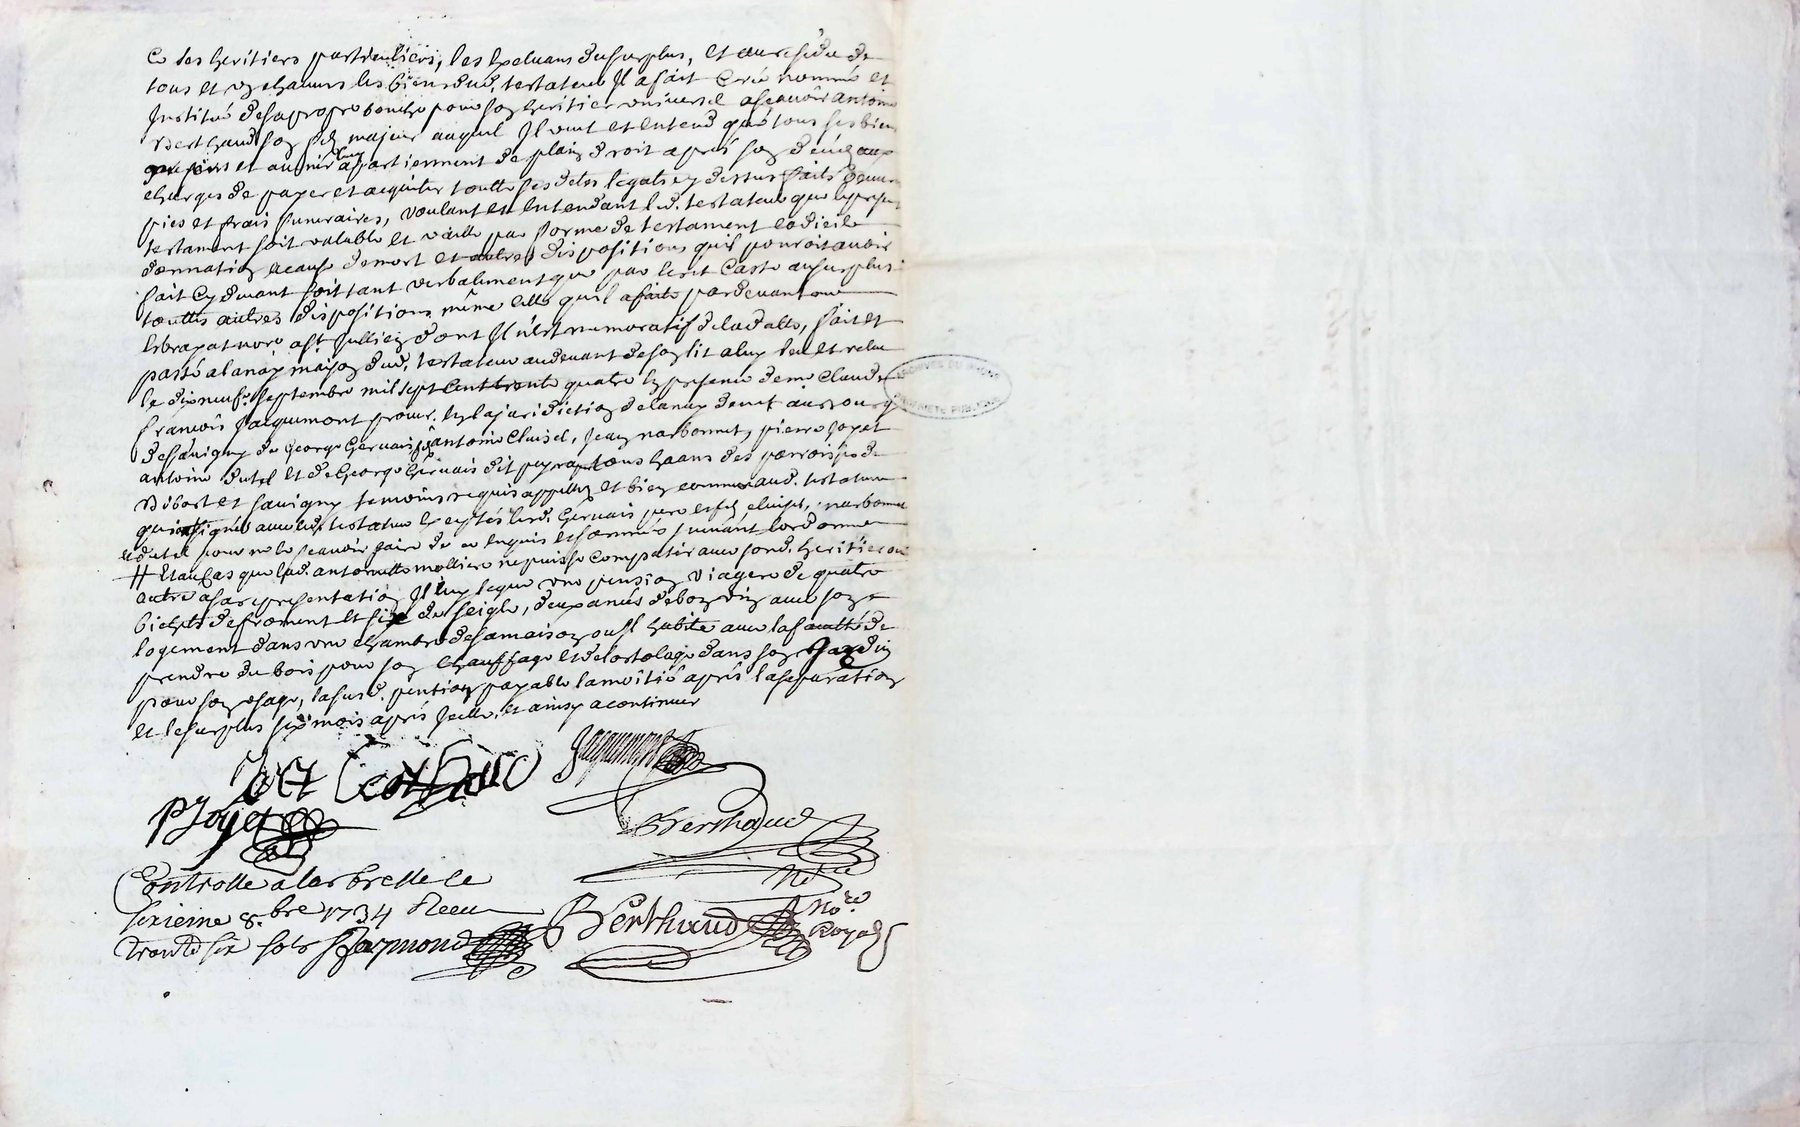 Ce ses heritiers particulliers, les Excluans du surplus, Et au residu de
tous et un chacuns les biens dud. testateur Il a fait Créé nommé et
Institué de sa propre bouche pour son heritier universel asçavoir antoine
Berthaud son fils majeur auquel Il veut et Entend que tous ses biens
presens et avenir luy appartiennent de plain droit aprés son déceds aux
charges de payer et acquiter toutte ses dettes legats cy dessus faits oeuvres
pies et frais funeraires, voulant et Entendant led. testateur que le present
testament soit valable et vaille par forme de testament Codicile
donnation a cause de mort et autres dispositions quil pourroit avoir
fait Cy devant soit tant verbalement que par Escrit Casse au surplus
touttes autres dispositions même celle quil a faite pardevant
Nore a st Jullien dont Il n'est memoratif de la datte, fait et
passé a lanay maison dud. testateur au devant de son lit a luy leu et releu
le dixneuf.e septembre mil sept Cent trente quatre En presence de me Claude
francois Jacquemont procur. En la juridiction de lanay demt. au Bourg
de savigny de George Gervais fils antoine Cluisel, Jean narbonnet, pierre Joyet
antoine dutel Et de George Gervais dit peyrap tous habans des parroisses de
Bibost et savigny temoins requis appellés et bien connus aud. testateur
qui ont signé avec led. testateur Exceptés lesd. Gervais pere et fils, cluisel, narbonnet
et dutel pour ne le sçavoir faire de ce Enquis et sommés suivant lordonnance
# Et au Cas que lad. antoinette molliere ne puisse Compatir avec sond. heritier ou
autre a sa representation Il luy legue une pension viagere de quatre
bichets de froment et six de seigle, deux anées de bon vin avec son
logement dans une chambre de sa maison ou Il habite avec la faculté de
prendre du bois pour son chauffage et de lortolage dans son Jardin
pour son usage, lasusd. pention payable la moitié aprés la separation
et le surplus six mois aprés Jcelle, et ainsy a continuer
Jacquemont
P Joyet
Berthaud
Controllé a larbrelle le
sixieme 8.bre 1734 Receu
trente six sols Raymond
Berthaud Nore.
Royal
ARCHIVES DU RHONE
PROPRIETE PUBLIQUE